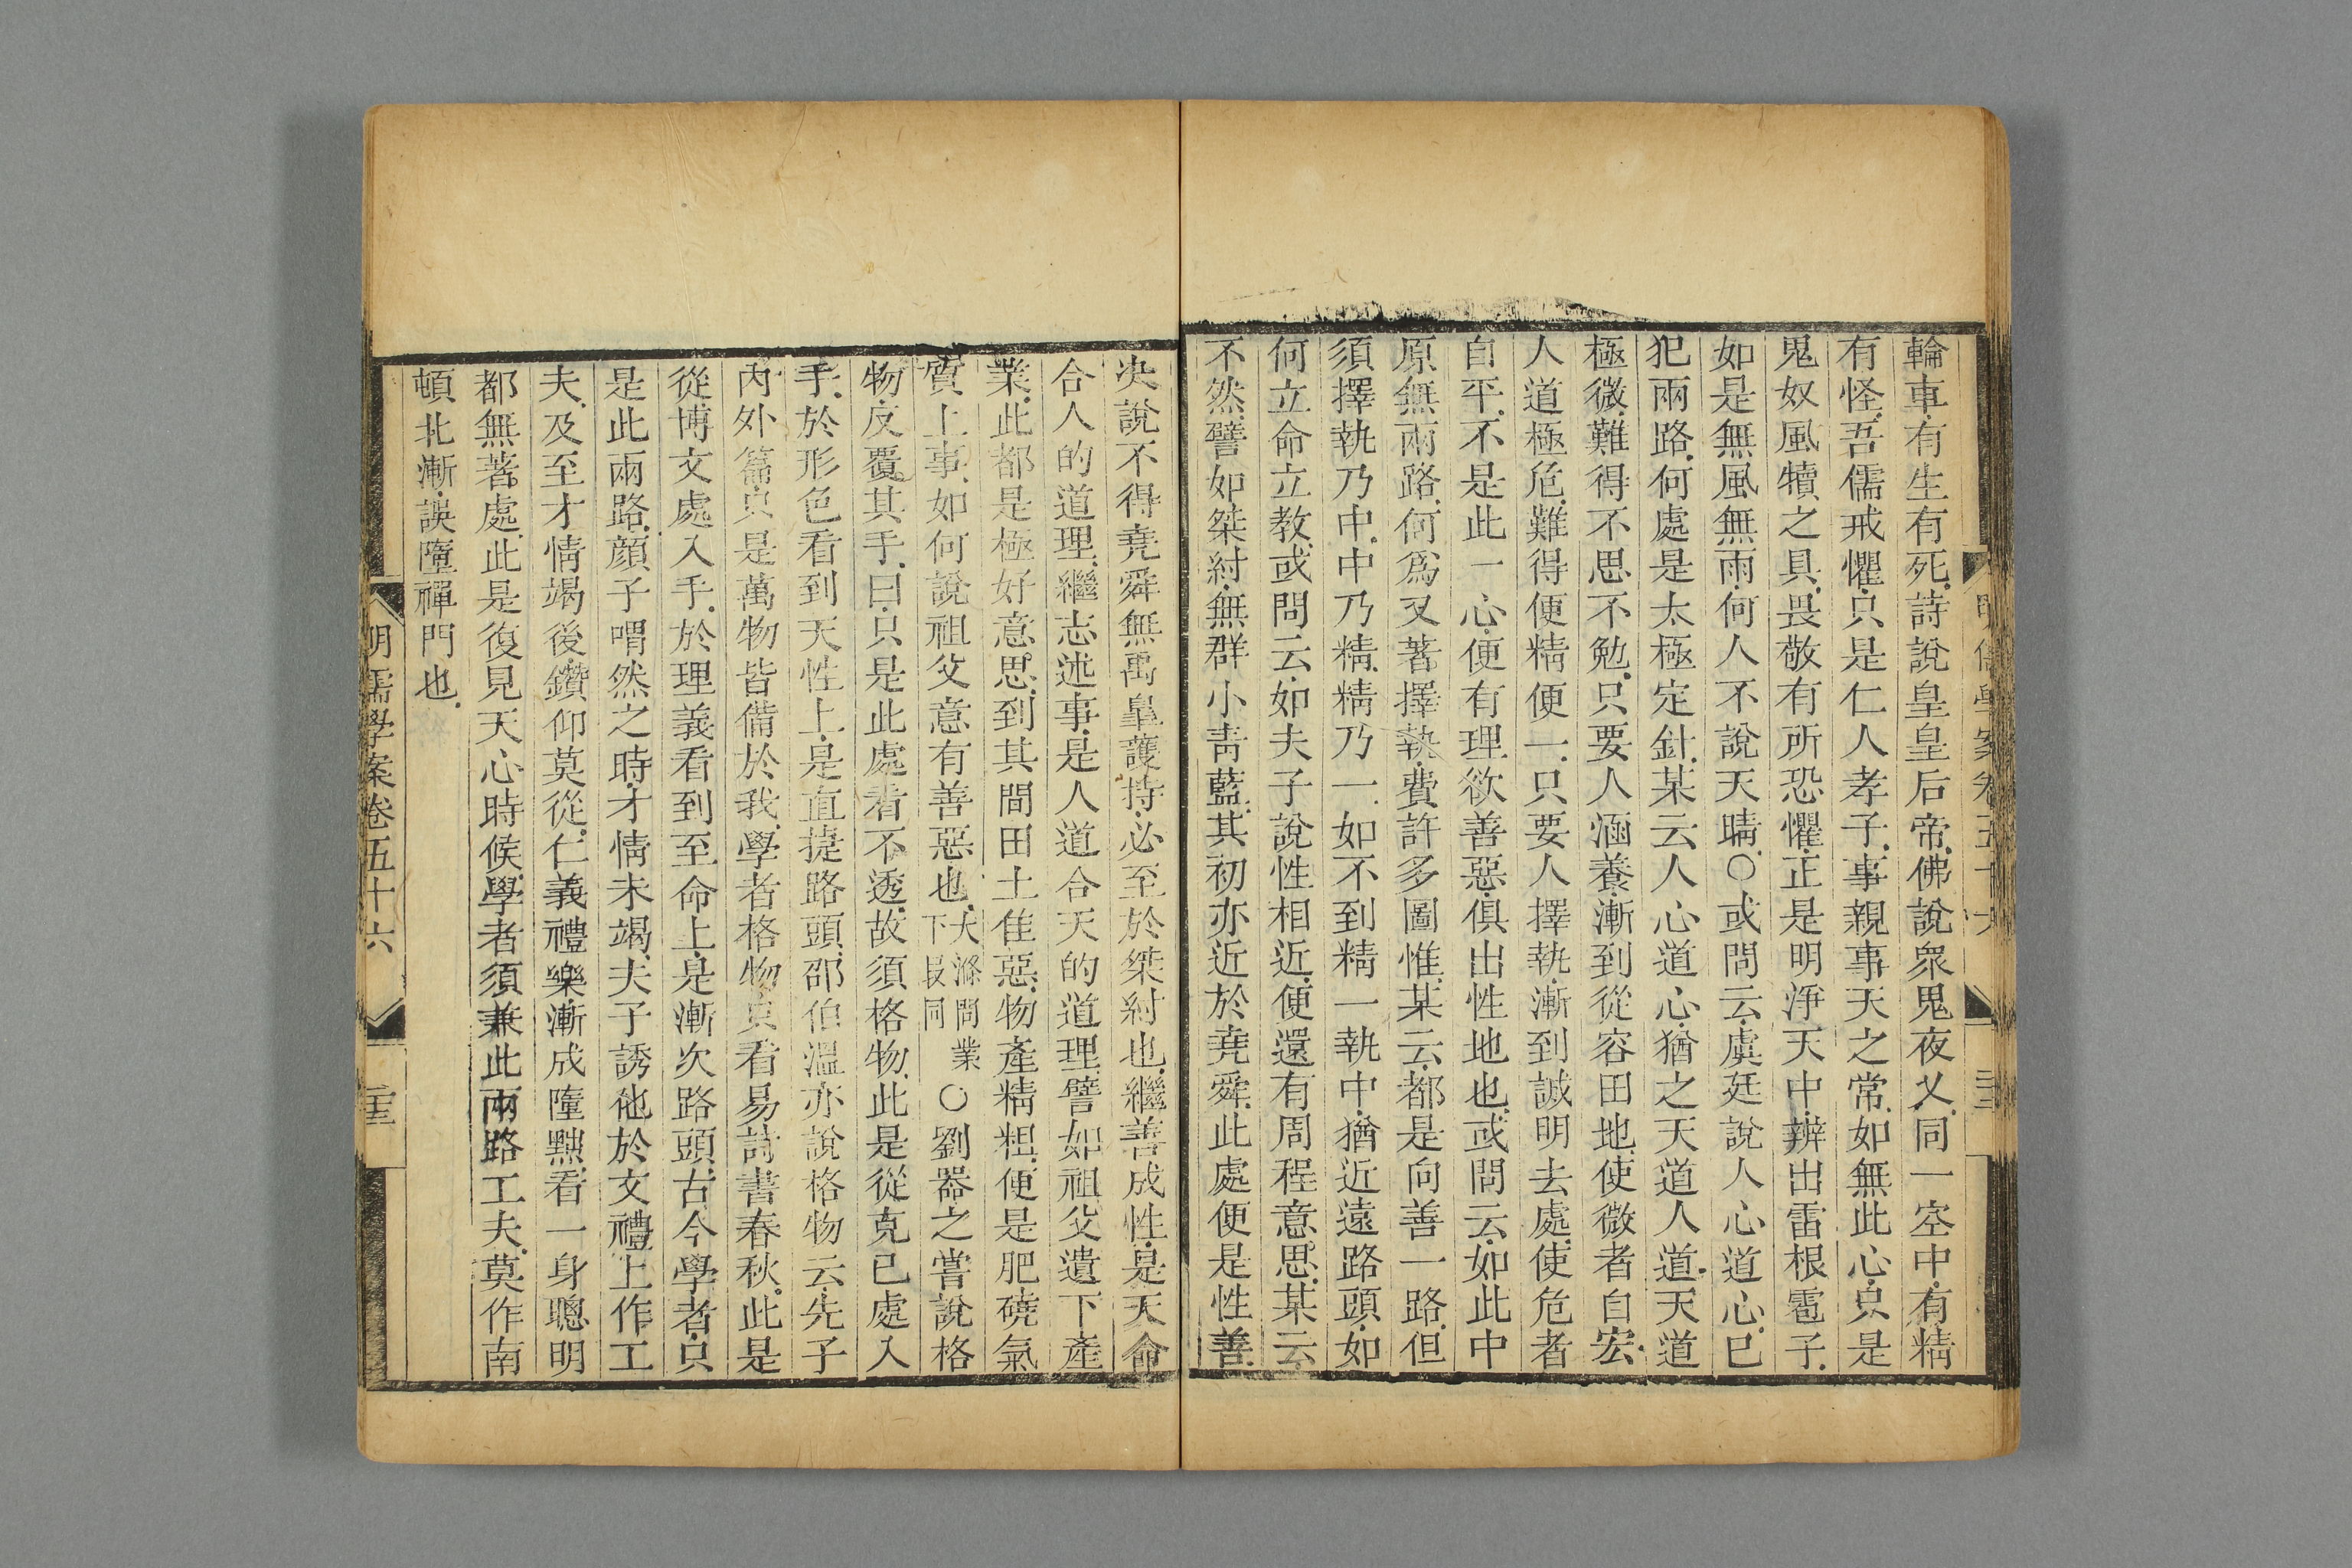 輪車.有生有死.詩說皇皇后帝.佛說衆鬼夜叉.同一空中.有精
有怪.吾儒戒懼.只是仁人孝子.事親事天之常.如無此心.只是
鬼奴風犢之具.畏敬有所恐懼.正是明淨天中.辨出雷根雹子.
如是無風無雨.何人不說天晴.○或問云.虞廷說人心道心.已
犯兩路.何處是太極定針.某云人心道心.猶之天道人道.天道
極微.難得不思不勉.只要人涵養.漸到從容田地.使微者自宏.
人道極危.難得便精便一.只要人擇執.漸到誠明去處.使危者
自平.不是此一心.便有理欲善惡.俱出性地也.或問云.如此中
原無兩路.何爲又著擇執.費許多圖惟.某云.都是向善一路.但
須擇執乃中.中乃精.精乃一.如不到精一執中.猶近遠路頭.如
何立命立教.或問云.如夫子說性相近.便還有周程意思.某云
不然.譬如桀紂.無群小靑藍.其初亦近於堯舜.此處便是性善.
決說不得堯舜無禹皐護持.必至於桀紂也.繼善成性.是天命
合人的道理.繼志述事.是人道合天的道理.譬如祖父遺下產
業.此都是極好意思.到其間田土佳惡.物產精粗.便是肥磽氣
質上事.如何說祖父意有善惡也.大滌問業下段同○劉器之嘗說格
物.反覆其手.曰.只是此處看不透.故須格物.此是從克己處入
手.於形色看到天性上.是直捷路頭.邵伯溫亦說格物云.先子
內外篇.只是萬物皆備於我.學者格物.只看易詩書春秋.此是
從博文處入手.於理義看到至命上.是漸次路頭.古今學者.只
是此兩路.顏子喟然之時.才情未竭.夫子誘他於文禮上作工
夫.及至才情竭後.鑽仰莫從.仁義禮樂.漸成墮黜.看一身聰明
都無著處.此是復見天心時候.學者須兼此兩路工夫.莫作南
頓北漸.誤墮禪門也.
明儒學案卷五十六